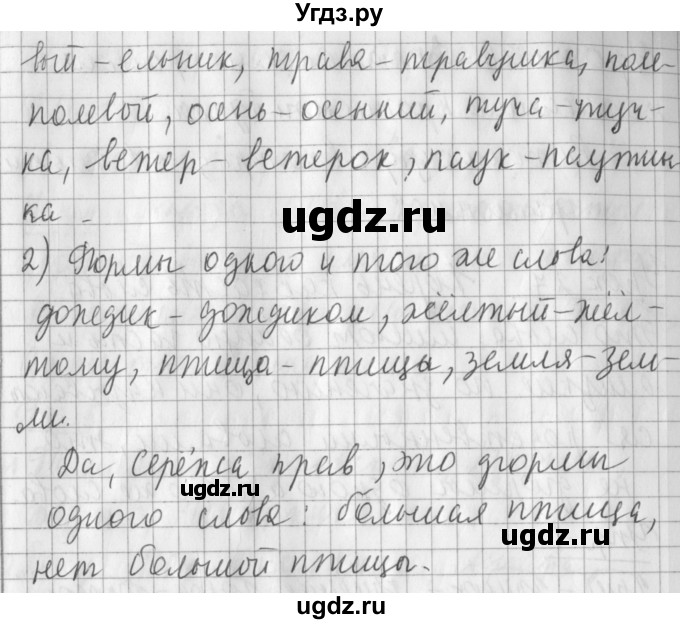 Угдз.ру
вый - ельник, трава - травушка, поле-
полевой, осень - осенний, туча - туч-
ка, ветер - ветерок, паук - паутин
ка.
ugdz.ru
2) Формы одного и того же слова:
дождик - дождиком, жёлтый - жёл-
тому, птица - птицы, земля - зем-
ли.
Да, Серёжа прав, это формы
ugdz.ru
одного слова: большая птица,
ugdz.ru
нет большой птицы.
ugdz.ru